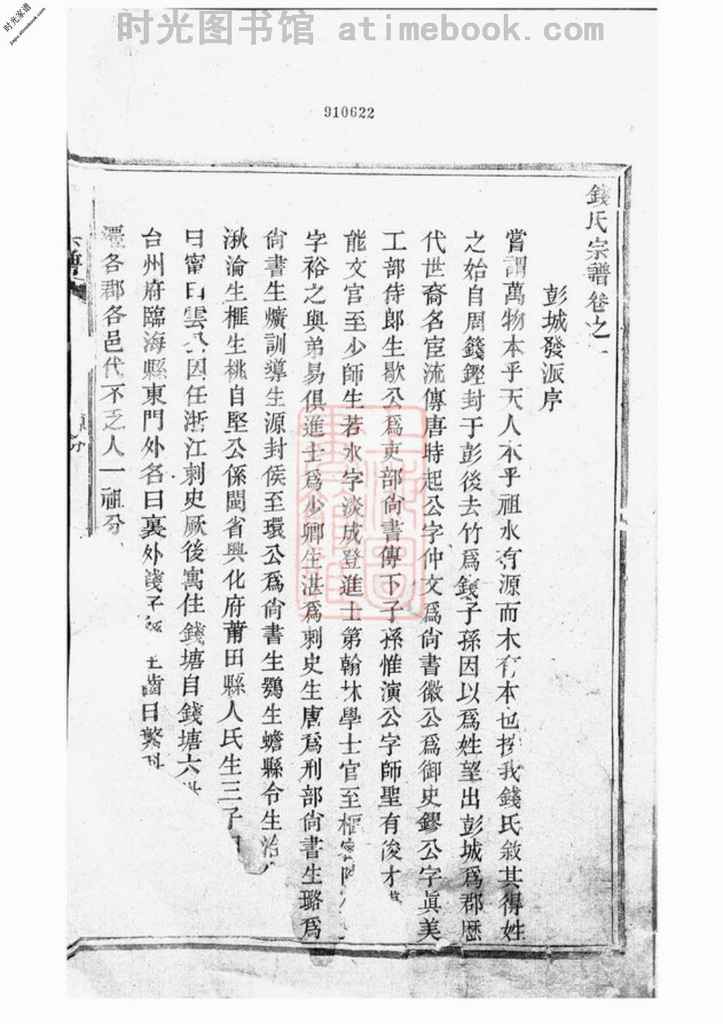 时光家谱
jiapu.atimebook.com
时光图书馆 atimebook.com
910622
錢氏宗譜卷之一
彭城發派序
嘗謂萬物本乎天人本乎祖水有源而木有本也按我錢氏敘其得姓
之始自周籛鏗封于彭後去竹爲錢子孫因以爲姓望出彭城爲郡歷
代世裔名宦流傳唐時起公字仲文爲尙書徽公爲御史鏐公字眞美
工部侍郎生歇公爲吏部尙書傳下子孫惟演公字師聖有俊才
能文官至少師生若水字淡成登進士第翰林學士官至樞密
字裕之與弟易俱進士爲少卿生湛爲刺史生唐爲刑部尙書生璐爲
尙書生爌訓導生源封侯至環公爲尙書生鶚生蟾縣令生治
湫淪生榧生桃自堅公係閩省興化府莆田縣人氏生三子
曰甯曰雲公因任浙江刺史厥後寓住錢塘自錢塘六世
台州府臨海縣東門外名曰裏外錢 生齒日繁
遷各郡各邑代不乏人一祖分
宗譜